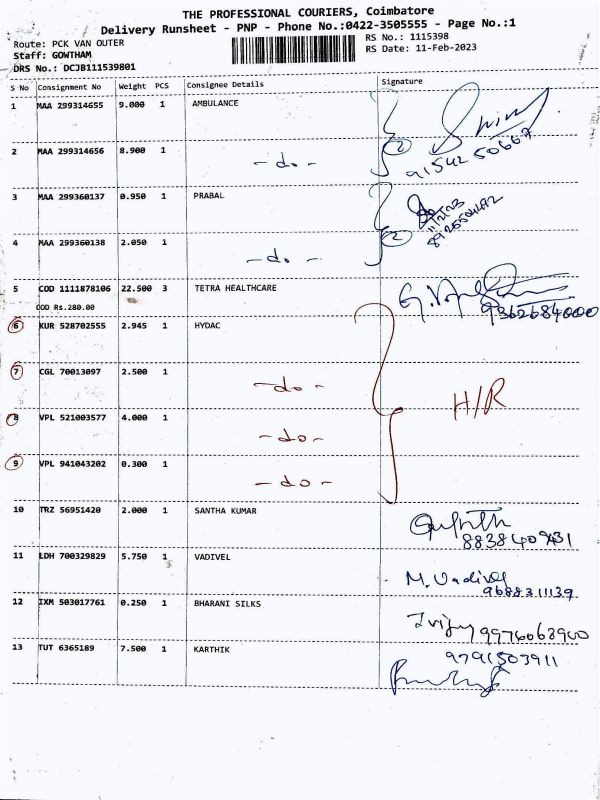 THE PROFESSIONAL COURIERS, Coimbatore
Delivery Runsheet - PNP - Phone No.:0422-3505555 - Page No.:1
Route: PCK VAN OUTER RS No.: 1115398
Staff: GOWTHAM RS Date: 11-Feb-2023
DRS No.: DCJB111539801
S No Consignment No Weight PCS Consignee Details Signature
1 MAA 299314655 9.000 1 AMBULANCE
2 MAA 299314656 8.900 1 -do- (2) 9154250667
3 MAA 299360137 0.950 1 PRABAL 11/2/23
4 MAA 299360138 2.050 1 -do- (2)
5 COD 1111878106 22.500 3 TETRA HEALTHCARE
COD Rs.280.00 9362684000
6 KUR 528702555 2.945 1 HYDAC
7 CGL 70013097 2.500 1 -do- H/R
8 VPL 521003577 4.000 1 -do-
9 VPL 941043202 0.300 1 -do-
10 TRZ 56951420 2.000 1 SANTHA KUMAR
11 LDH 700329829 5.750 1 VADIVEL M. Vadivel
9688311139
12 IXM 503017761 0.250 1 BHARANI SILKS 9976068900
13 TUT 6365189 7.500 1 KARTHIK 9791503911